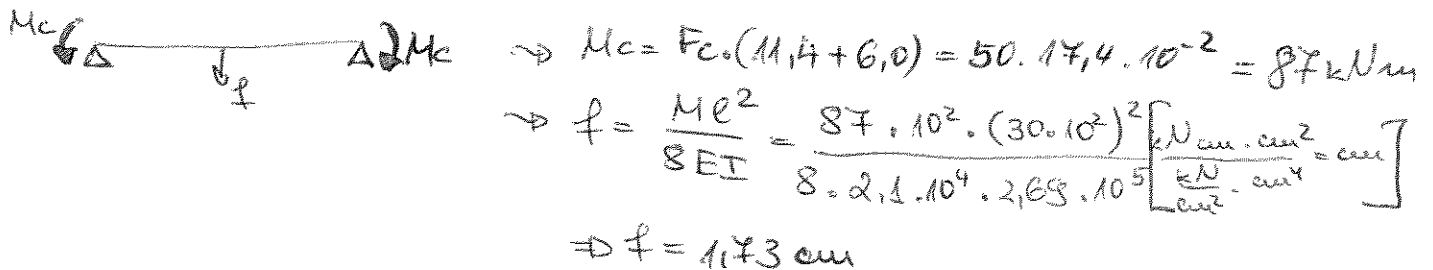 Mc Mc → Mc = Fc.(11,4+6,0) = 50. 17,4 . 10⁻² = 87 kNm
f → f = Mℓ² / 8EI = 87 . 10² . (30.10²)² / 8 . 2,1 . 10⁴ . 2,69 . 10⁵ [kNcm . cm² / kN/cm² . cm⁴ = cm]
⇒ f = 1,73 cm